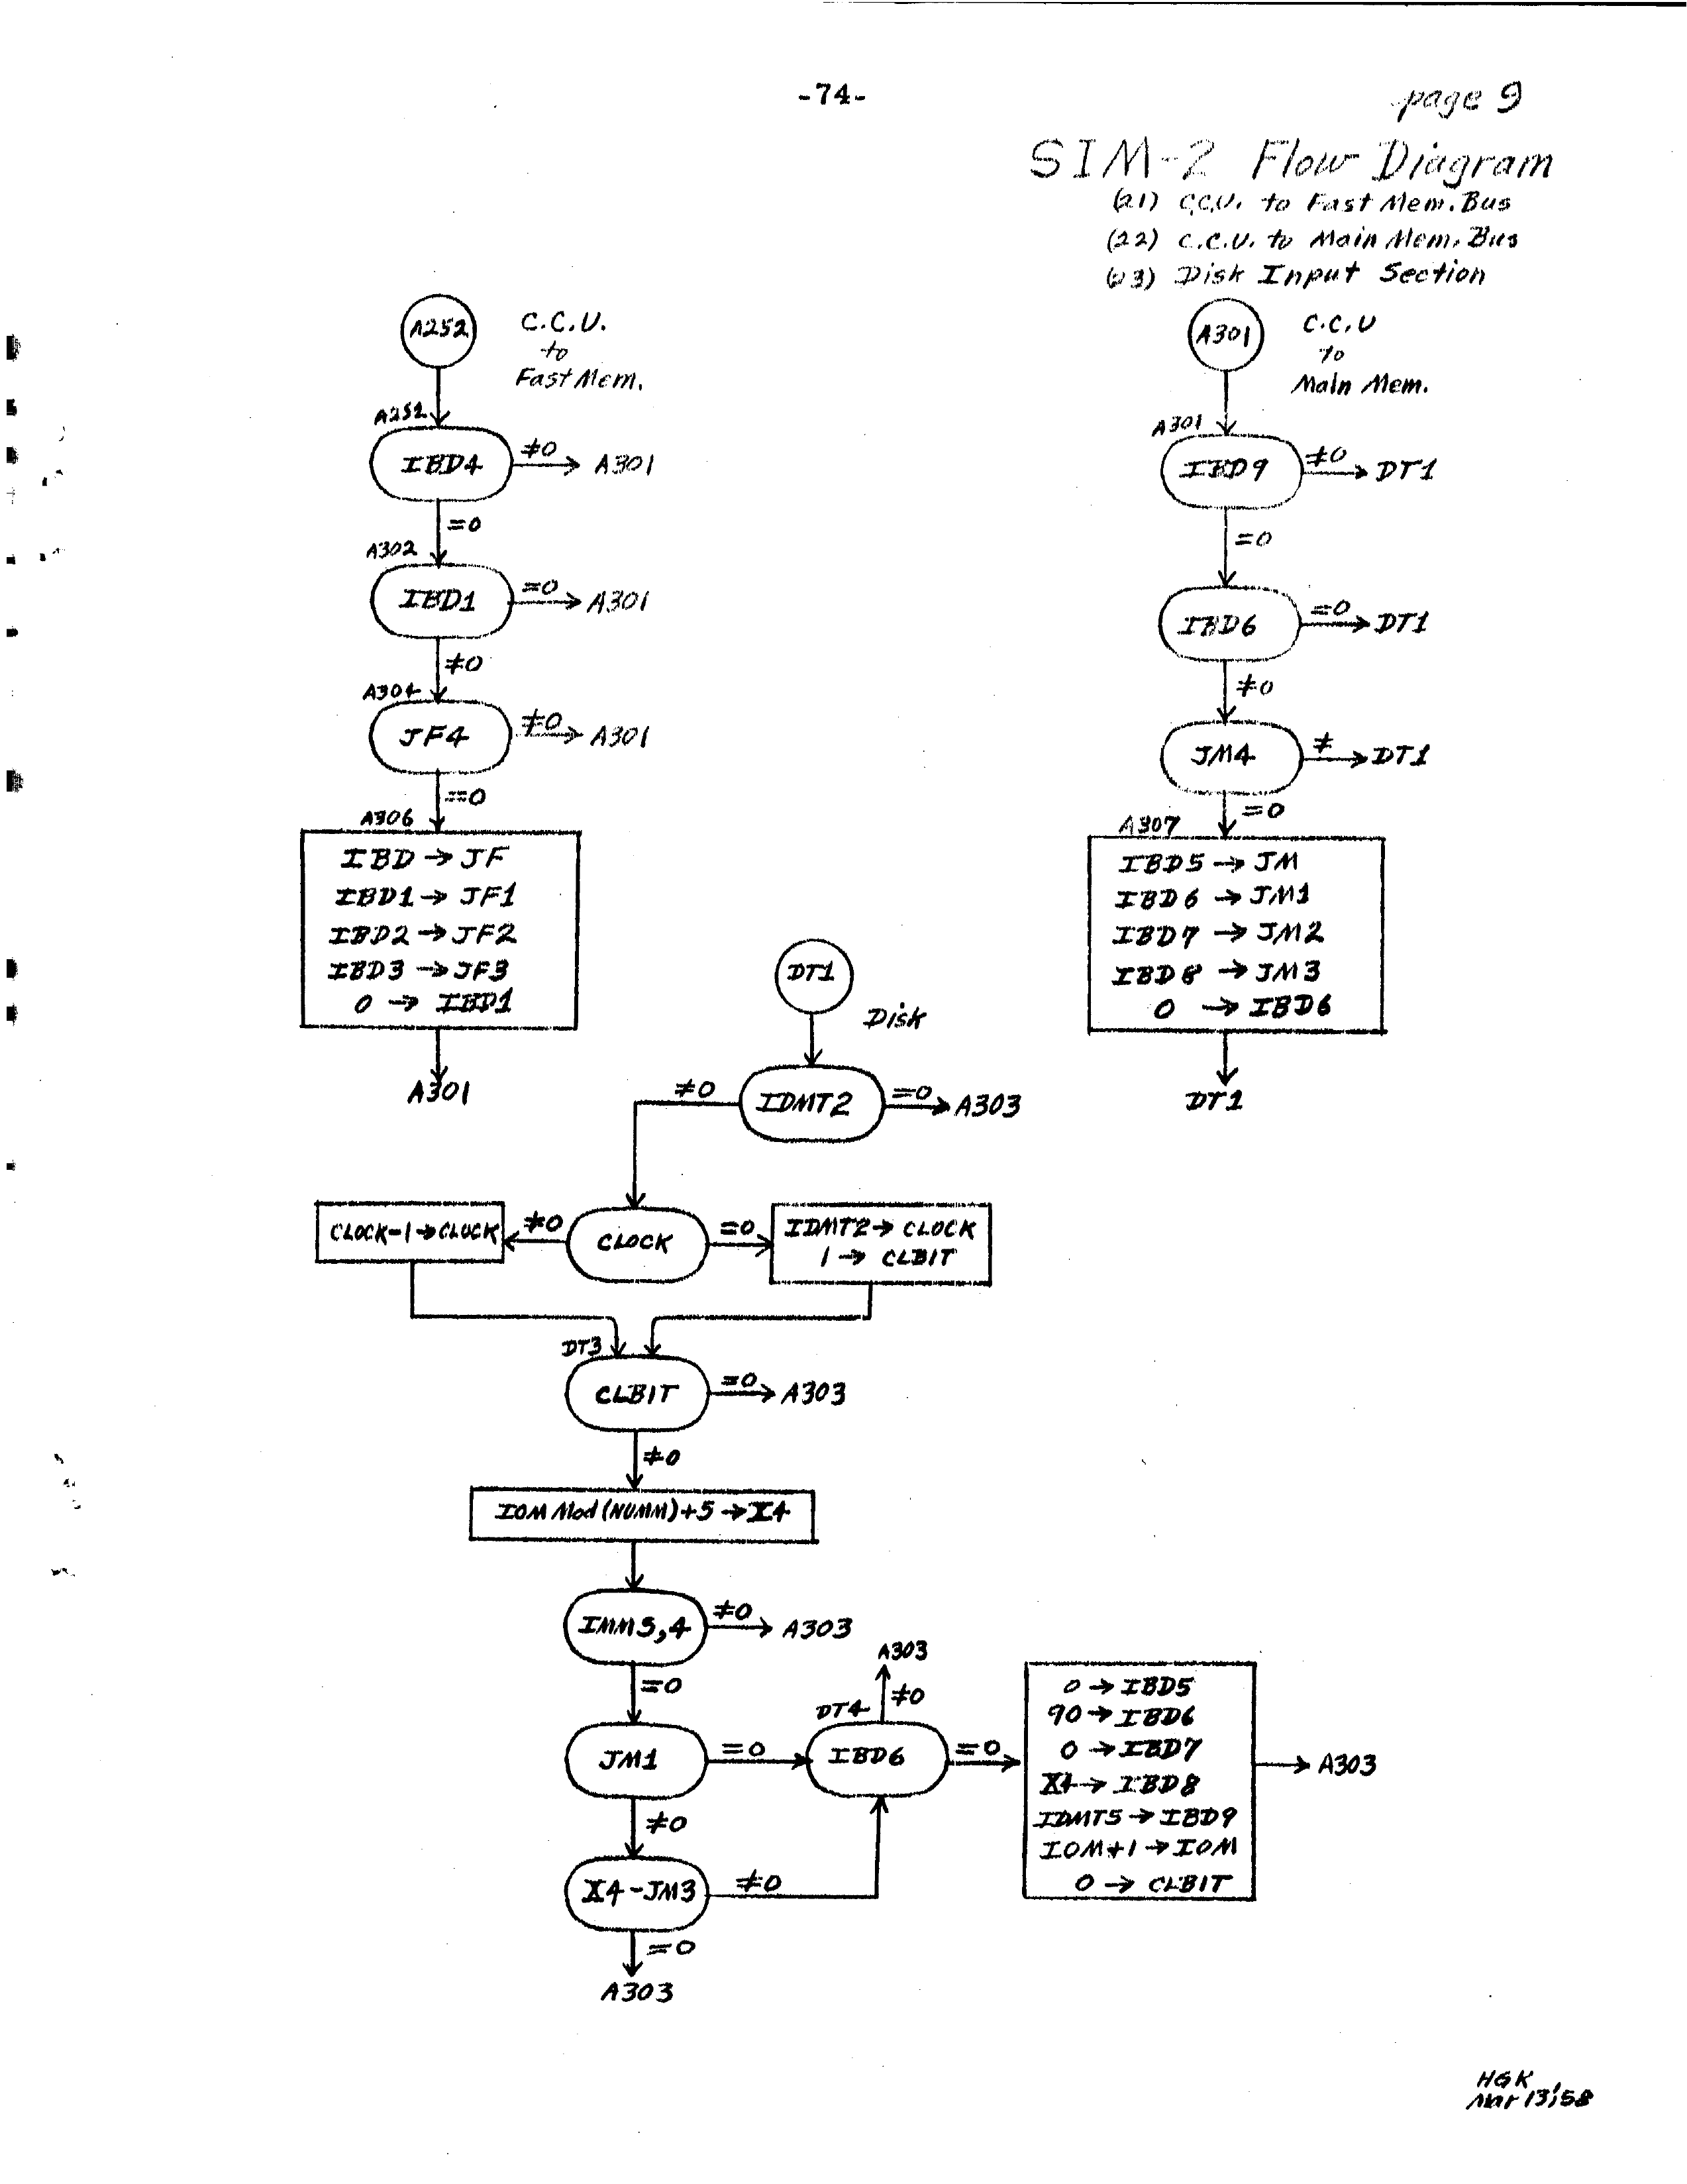 -74-
page 9
SIM-2 Flow Diagram
(21) C.C.U. to Fast Mem. Bus
(22) C.C.U. to Main Mem. Bus
(23) Disk Input Section
A252
C.C.U.
to
Fast Mem.
A251
IBD4
≠0
A301
=0
A302
IBD1
=0
A301
≠0
A304
JF4
≠0
A301
=0
A306
IBD → JF
IBD1 → JF1
IBD2 → JF2
IBD3 → JF3
0 → IBD1
A301
A301
C.C.U
to
Main Mem.
A301
IBD9
≠0
DT1
=0
IBD6
=0
DT1
≠0
JM4
≠
DT1
=0
A307
IBD5 → JM
IBD6 → JM1
IBD7 → JM2
IBD8 → JM3
0 → IBD6
DT1
DT1
Disk
≠0
IDMT2
=0
A303
CLOCK-1 → CLOCK
≠0
CLOCK
=0
IDMT2 → CLOCK
1 → CLBIT
DT3
CLBIT
=0
A303
≠0
IOM Mod (NUMM)+5 → X4
IMM5,4
≠0
A303
=0
JM1
=0
DT4
IBD6
≠0
A303
=0
0 → IBD5
90 → IBD6
0 → IBD7
X4 → IBD8
IDMT5 → IBD9
IOM+1 → IOM
0 → CLBIT
A303
≠0
X4-JM3
≠0
=0
A303
HGK
Mar 13,'58